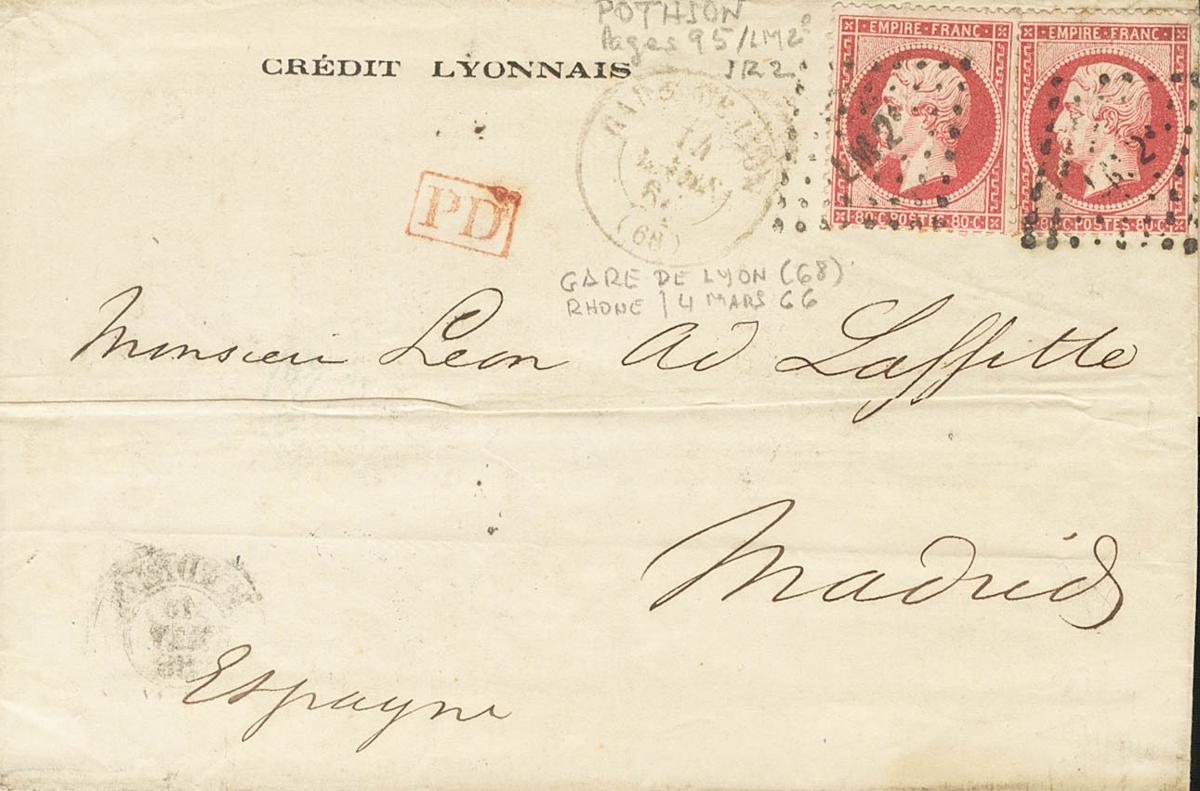 POTHION
Pages 95/LM2º
JR2
CRÉDIT LYONNAIS
EMPIRE FRANC
LM2º
80·C POSTES 80·C
EMPIRE FRANC
80·C POSTES 80·C
GARE DE LYON
14
MARS
(68)
PD
GARE DE LYON (68)
RHONE 14 MARS 66
Monsieur Léon Ad Laffitte
Madrid
Espagne